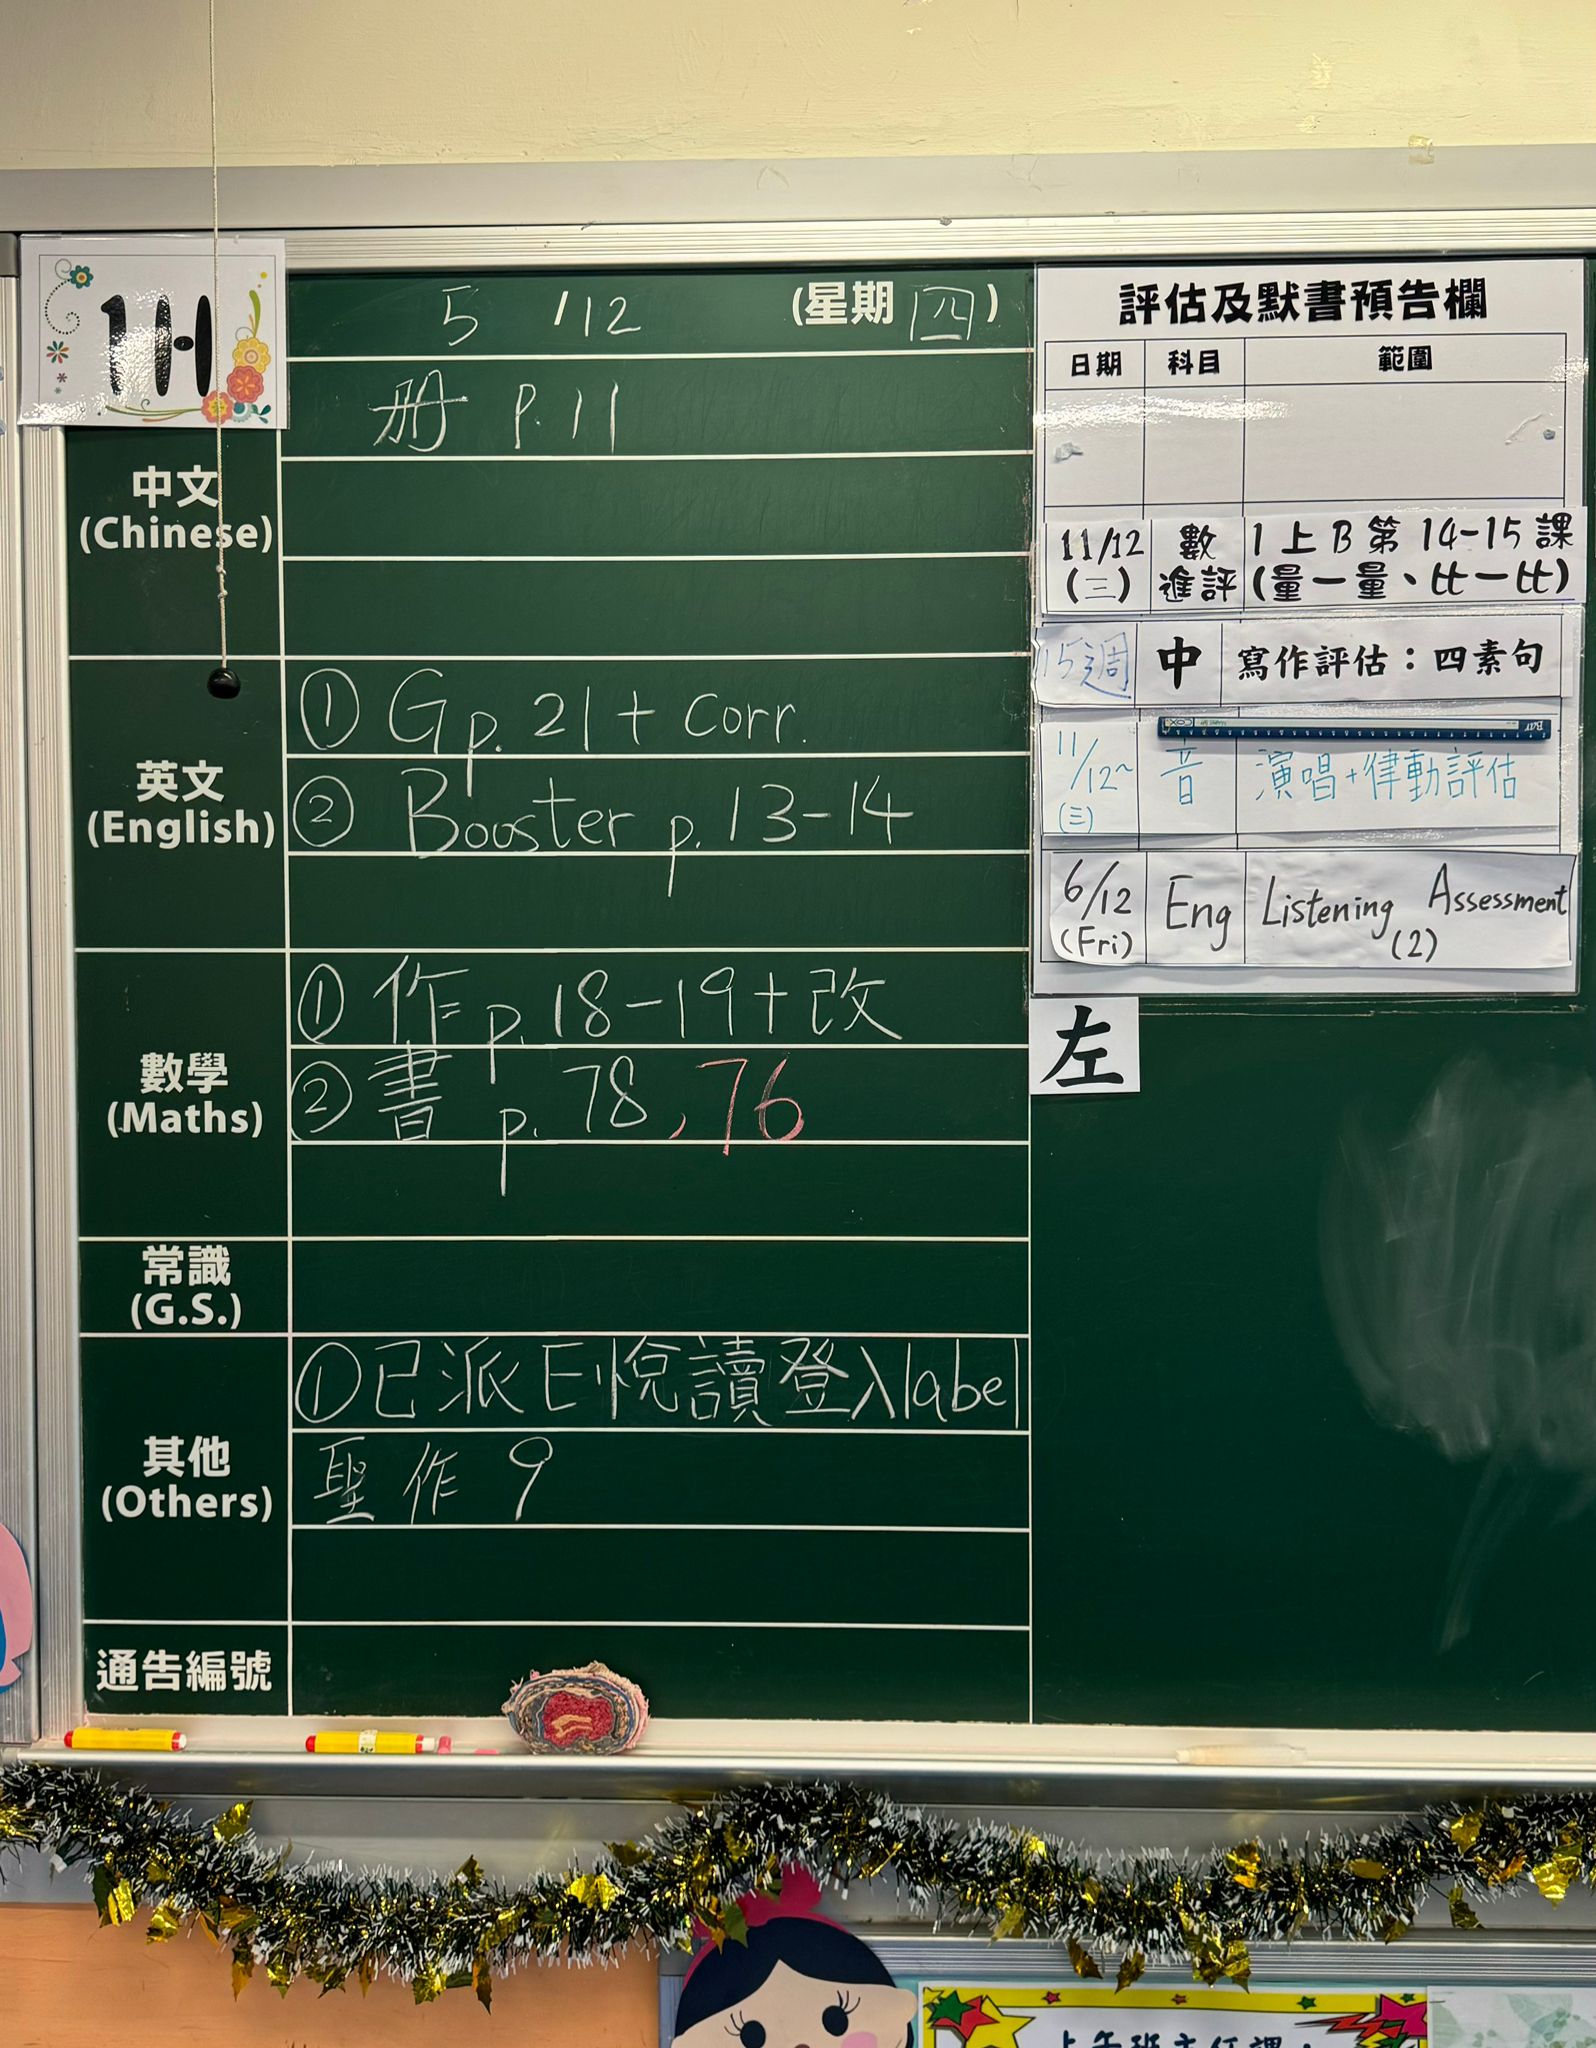 1H
5/12 (星期四)
中文
(Chinese)
冊 p.11
英文
(English)
① G p. 21 + corr.
② Booster p. 13-14
數學
(Maths)
① 作 p. 18-19 + 改
② 書 p. 78, 76
常識
(G.S.)
其他
(Others)
① 已派E悅讀登入label
聖作 9
通告編號
評估及默書預告欄
日期 科目 範圍
11/12 (三) 數 進評 1上B第14-15課
(量一量、比一比)
15週 中 寫作評估：四素句
11/12~ (三) 音 演唱+律動評估
6/12 (Fri) Eng Listening Assessment (2)
左